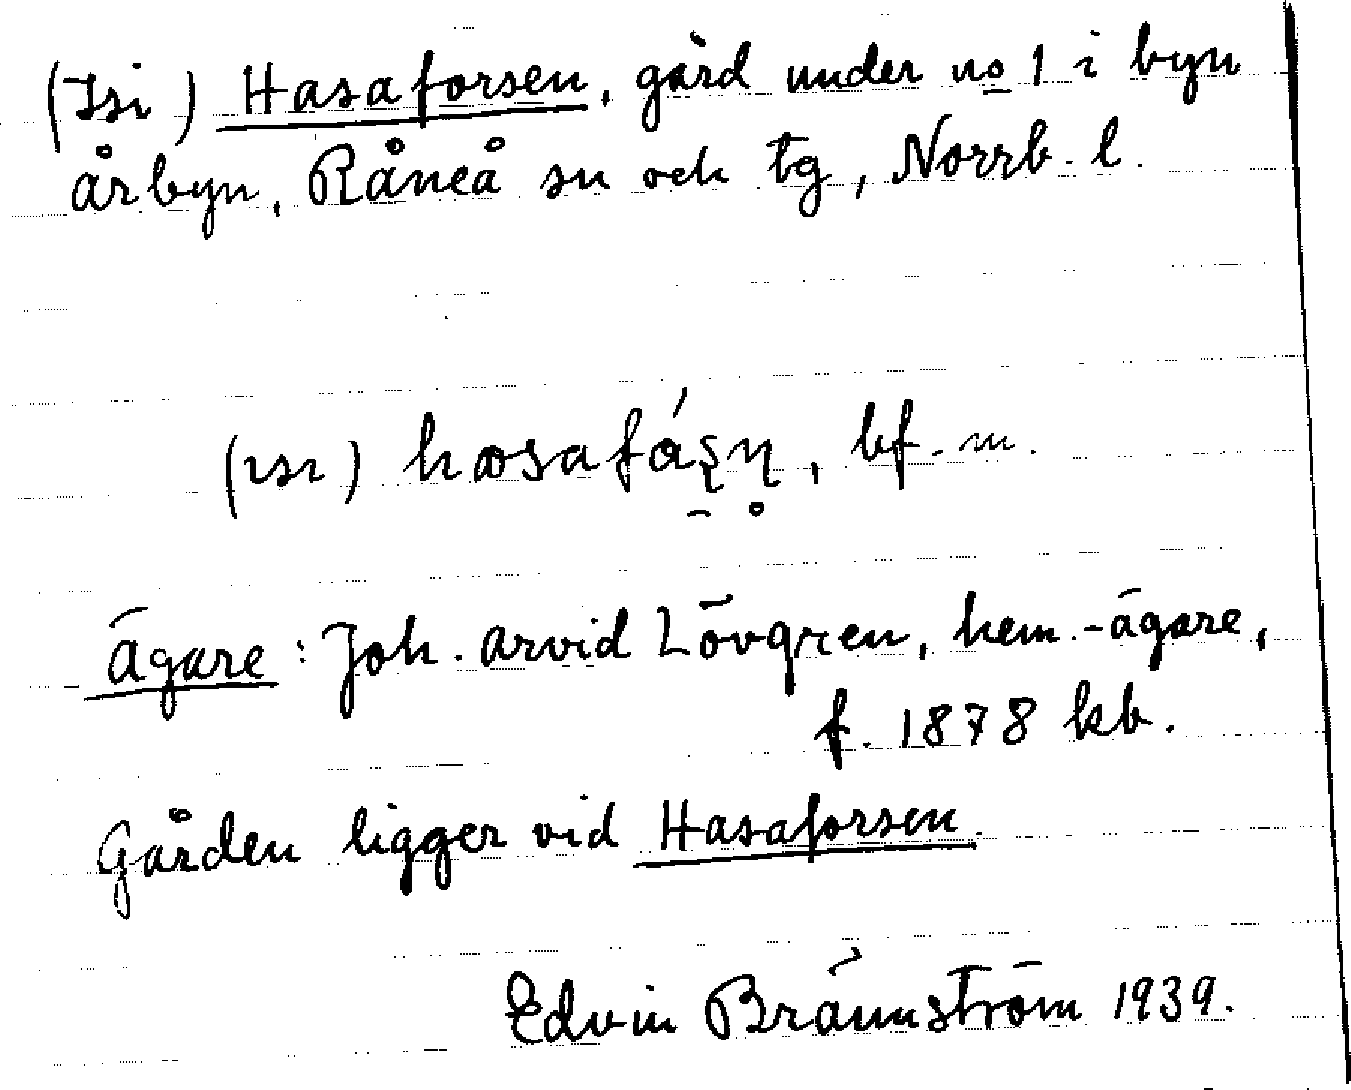 (Isi) Hasaforsen, gård under no 1 i byn
Årbyn, Råneå sn och tg, Norrb. l.
(ɪsɪ) hæsafáʂɳ̥, bf. m.
Ägare: Joh. Arvid Lövgren, hem.-ägare,
f. 1878 kb.
Gården ligger vid Hasaforsen.
Edvin Brännström 1939.